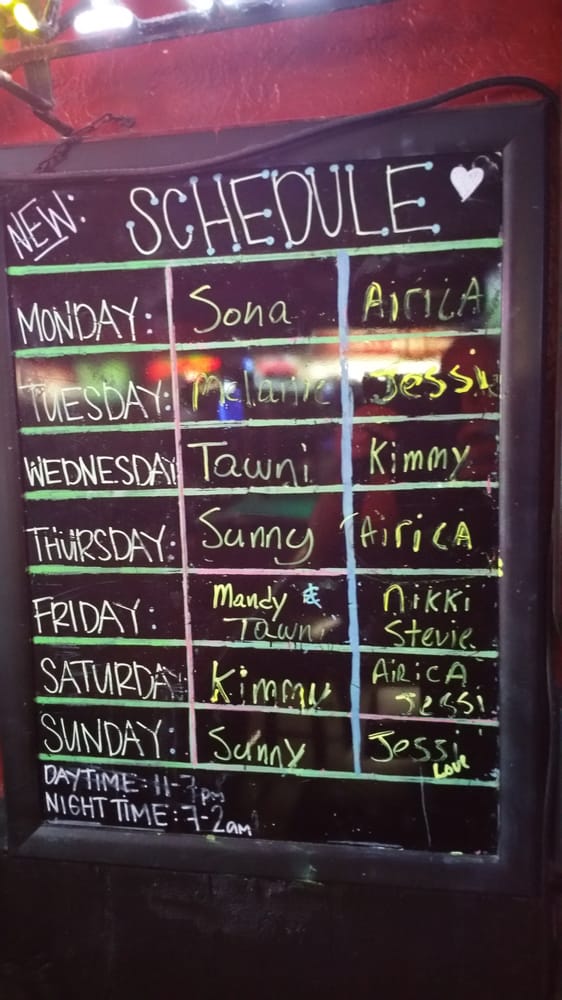 NEW: SCHEDULE
MONDAY: Sona AiriCA
TUESDAY: Melanie Jessi
WEDNESDAY Tawni Kimmy
THURSDAY: Sunny AiriCA
FRIDAY: Mandy & Nikki
Tawni Stevie
SATURDAY Kimmy AiRiCA
Jessi
SUNDAY: Sunny Jessi
Love
DAYTIME: 11-7pm
NIGHT TIME: 7-2am